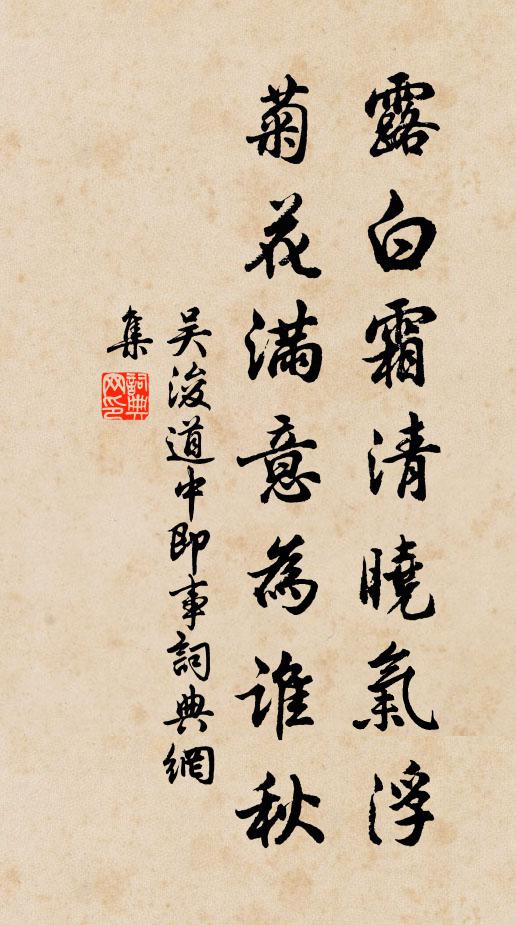 露白霜清曉氣浮
菊花滿意為誰秋
吴浚道中即事詞典網
集
詞典网印